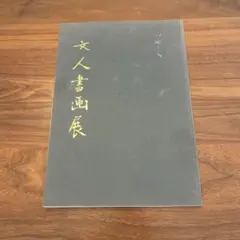 文人書画展